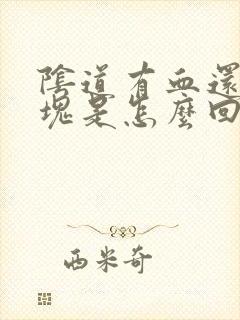 陰道有血還
塊是怎麼回
西米奇